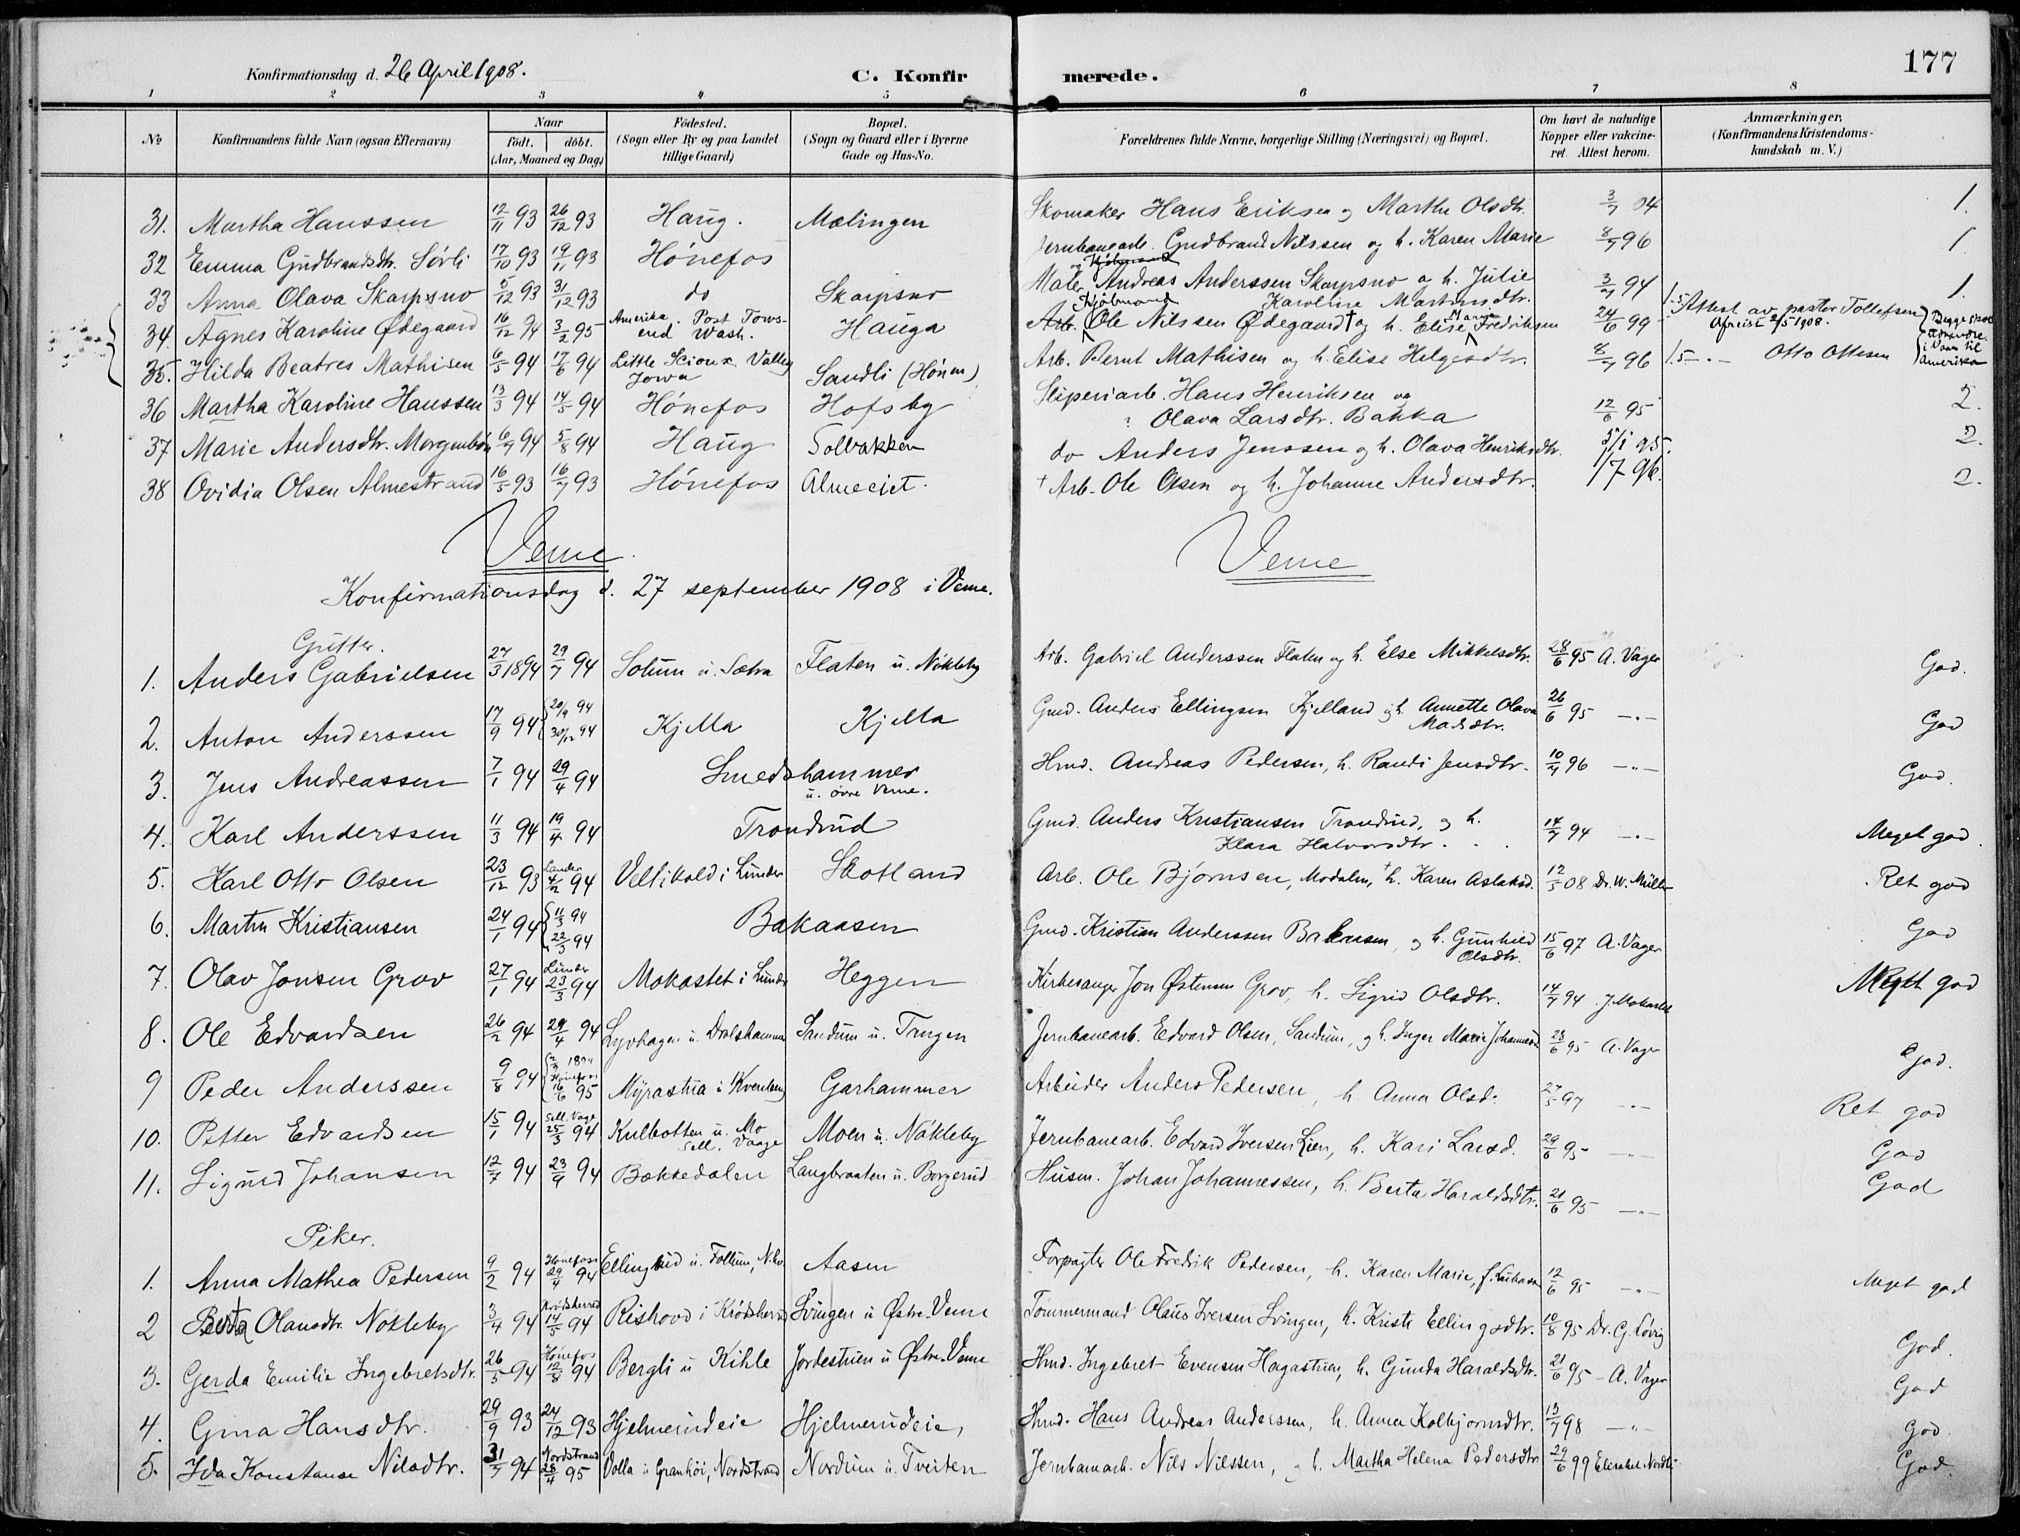 Konfirmationsdag d. 26 April 1908. C. Konfirmerede. 177
1 2 3 4 5 6 7 8
No Konfirmandens fulde Navn (ogsaa Efternavn) Naar födt. döbt. (Aar, Maaned og Dag) Födested. (Sogn eller By og paa Landet tillige Gaard) Bopæl. (Sogn og Gaard eller i Byerne Gade og Hus-No. Forældrenes fulde Navne, borgerlige Stilling (Næringsvei) og Bopæl. Om havt de naturlige Kopper eller vakcineret. Attest herom. Anmærkninger, (Konfirmandens Kristendomskundskab m. V.)
31. Martha Hanssen 12/11 93 26/12 93 Haug. Mælingen Skomaker Hans Eriksen og Marthe Olsdtr. 3/7 04 1.
32 Emma Gudbrandsdtr. Sørli 17/10 93 19/11 93 Hönefos Jernbanearb. Gudbrand Nilssen og h. Karen Marie 8/7 96 1
33 Anna Olava Skarpsno 5/12 93 31/12 93 do Skarpsno Maler Andreas Anderssen Skarpsno og h. Julie Karoline Martinsdtr. 3/7 94 1.
34. Agnes Karoline Ødegaard 16/12 94 3/2 95 Amerika. Post Towsend Wash. Hauga Arb. Ole Nilssen Ødegaard † og h. Elise Marie Fredriksen 24/6 99 1.5 Attest av pastor Tollefsen Afreist 2/5 1908.
35. Hilda Beatres Mathisen 6/5 94 17/6 94 Little Scioux Valley Jowa Sandli (Hönen) Arb. Bernt Mathisen og h. Elise Helgesdtr. 8/7 96 1.5 -.- Otto Ottesen
36 Martha Karoline Hanssen 13/3 94 14/5 94 Hönefos Hofsby Sliperiarb. Hans Henriksen og Olava Larsdtr. Bakka 12/6 95 2.
37 Marie Andersdtr. 6/7 94 5/8 94 Haug Solbakken do Anders Jenssen og h. Olava Henriksdtr. 5/1 95. 2.
38 Ovidia Olsen Almestrand 16/5 93 16/7 93 Hönefos Almeeiet. † Arb. Ole Olsen og h. Johanne Andersdtr. 1/7 96. 2.
Veme. Veme
Konfirmationsdag d. 27 september 1908 i Veme.
Gutter.
1. Anders Gabrielsen 27/3 1894 29/7 94 Solum u. Sætra Flaten u. Nökleby Arb. Gabriel Anderssen Flaten og h. Else Mikkelsdtr. 28/6 95 A. Vager God.
2. Anton Anderssen 17/9 94 20/9 94 30/12 94 Kjella Kjella Gmd. Anders Ellingsen Kjelland og h. Annette Olava Madsdtr. 26/6 95 -"- God
3. Jens Andreassen 7/1 94 29/4 94 Smedshammer u. övre Veme. Hmd. Andreas Pedersen, h. Randi Jensdtr. 10/7 96 -"- God.
4. Karl Anderssen 11/3 94 19/4 94 Trondrud Gmd. Anders Kristiansen Trondrud, og h. Klara Halvorsdtr. 14/7 94 -"- Meget god.
5. Karl Otto Olsen 23/12 93 Lunder 4/2 94 Veltikold i Lunder Skotland Arb. Ole Bjørnsen, Modalen, † h. Karen Aslaksd. 12/5 08 Dr. W. Müller Ret god
6. Martin Kristiansen 24/1 94 11/3 94 22/3 94 Bakaasen Gmd. Kristian Anderssen Bakaasen, og h. Gunhild Olsdtr. 15/6 97 A. Vager God
7. Olav Jonsen Grov 27/1 94 Lunder 23/3 94 Mokastet i Lunder Heggen Kirkesanger Jon Østensen Grov, h. Sigrid Olsdtr. 14/7 94 Meget god
8. Ole Edvardsen 26/2 94 29/4 94 Sandum u. Tangen Jernbanearb. Edvard Olsen, Sandum, og h. Inger Marie 28/6 95 A. Vager God.
9 Peder Anderssen 9/8 94 16/6 95 Garhammer Arbeider Anders Pedersen, h. Anna Olsd. 27/5 97 -"- Ret god
10. Petter Edvardsen 15/1 94 Soll. Vaage 25/3 94 Kulbotten u. Mo Soll. Vaage Moen u. Nökleby Jernbanearb. Edvard Iversen Lien, h. Kari Larsd. 29/6 95 -"- God
11. Sigurd Johansen 12/7 94 23/9 94 Bækkedalen Langbraaten u. Borgerud Husm. Johan Johannessen, h. Berta Haraldsdtr. 21/6 95 -"- God
Piker.
1. Anna Mathea Pedersen 9/2 94 Hönefoss 29/4 94 Ellingsrud u. Follum, Aasen Forpagter Ole Fredrik Pedersen, h. Karen Marie, 12/6 95 -"- Meget god
2 Berta Olausdtr. Nökleby 3/4 94 Krödsherred 14/5 94 Rishovd i Krödsherred Svingen u. Østre Veme Tömmermand Olaus Iversen Svingen, h. Kristi Ellingsdtr. 10/8 95 Dr. G. Lövig God.
3. Gerda Emilie Ingebretsdtr. 26/5 94 Hönefos 12/8 94 Bergli u. Kihle Jordestuen u. Østre Veme Hmd. Ingebret Evensen Hagastuen, h. Gunda Haraldsdtr. 21/6 95 - A. Vager God
4. Gina Hansdtr. 29/9 93 24/12 93 Hjelmerudeie Hjelmerudeie, Hmd. Hans Andreas Anderssen, h. Anna Kolbjørnsdtr. 13/7 98 -"- God.
5. Ida Konstanse Nilsdtr. 31/7 94 Nordstrand 28/4 95 Volla u. Granhöi, Nordstrand Nordum u. Tveiten Jernbanearb. Nils Nilssen, og h. Martha Helena Pedersdtr. 29/6 99 Elisabet Nordli God.